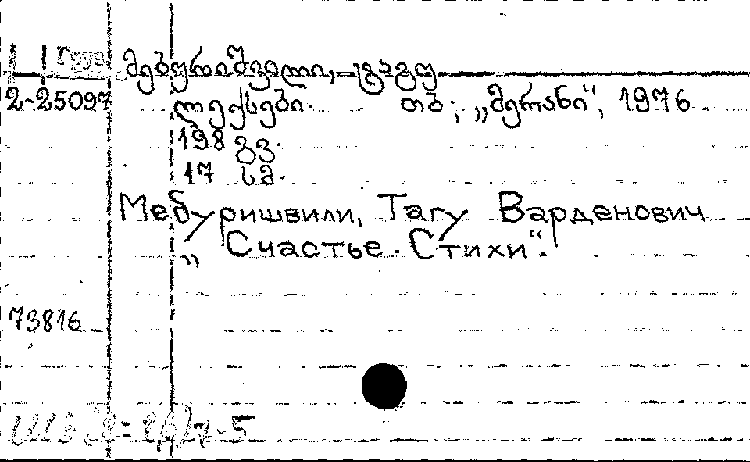 მებურიშვილი, ტაგუ
2-25097 ლექსები. თბ., „მერანი“, 1976
198 გვ.
17 სმ.
Мебуришвили, Тагу Варденович
„Счастье. Стихи“.
73816